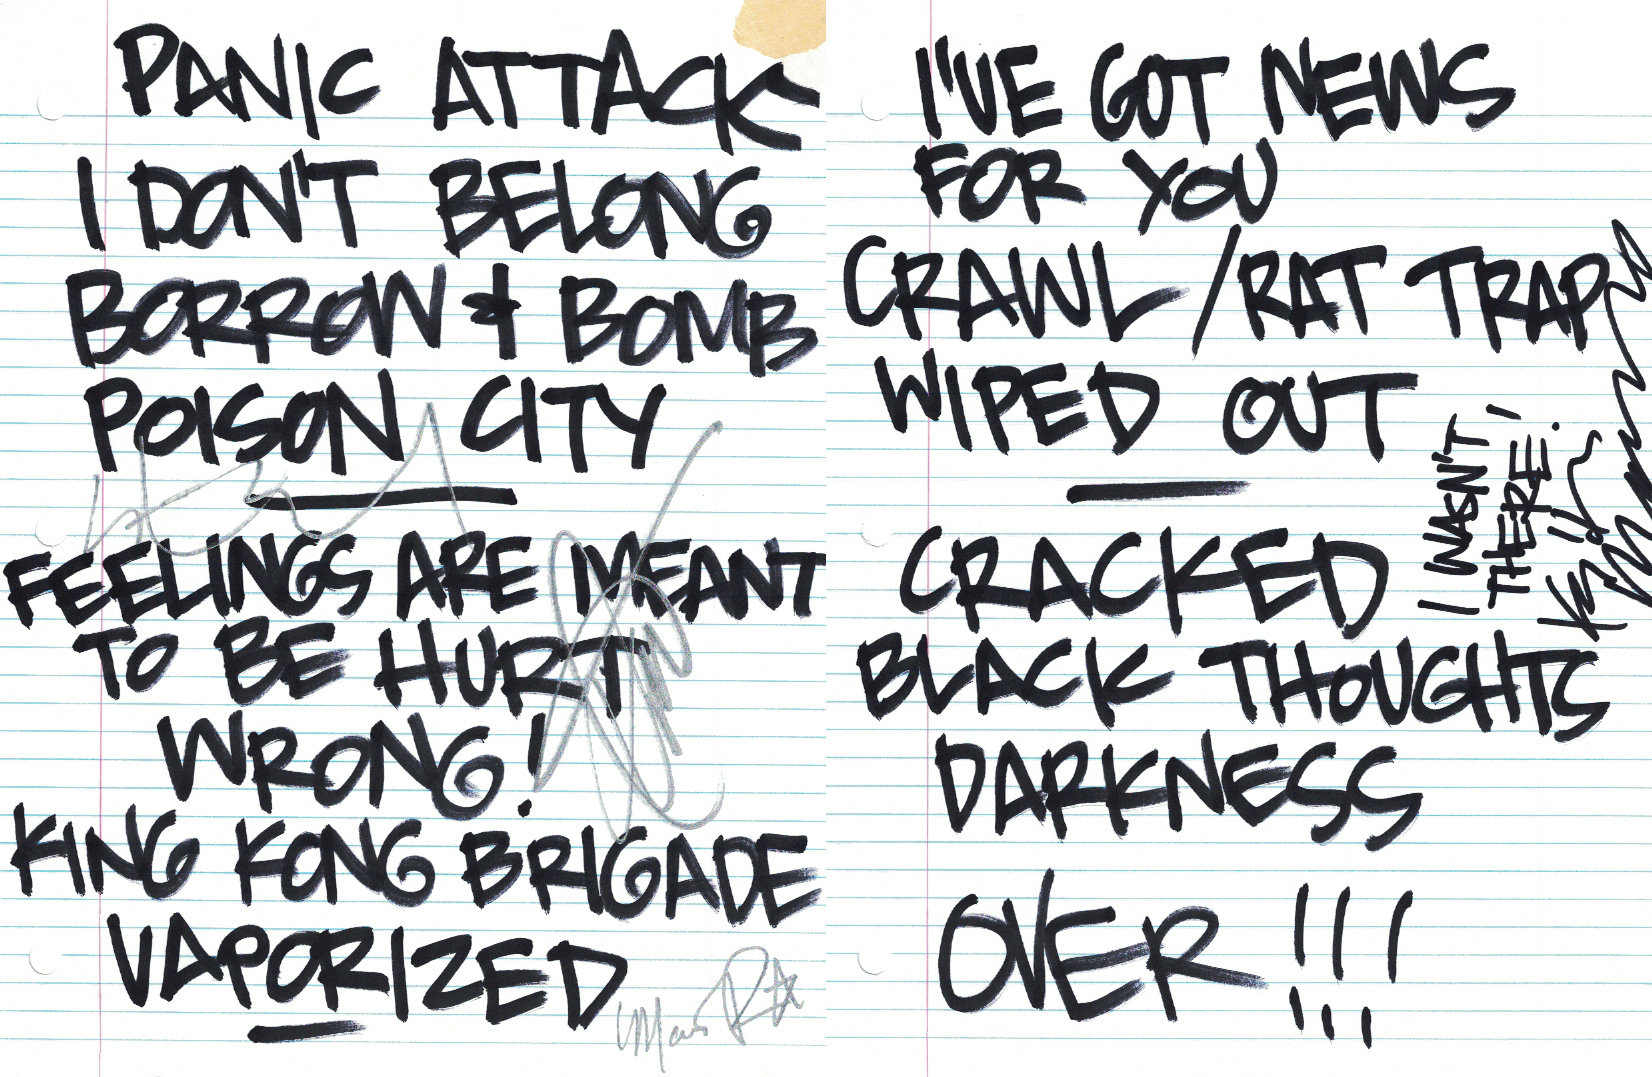 PANIC ATTACK
I DON'T BELONG
BORROW & BOMB
POISON CITY
FEELINGS ARE MEANT
TO BE HURT
WRONG!
KING KONG BRIGADE
VAPORIZED
I'VE GOT NEWS
FOR YOU
CRAWL / RAT TRAP
WIPED OUT
I WASN'T
THERE!
CRACKED
BLACK THOUGHTS
DARKNESS
OVER!!!